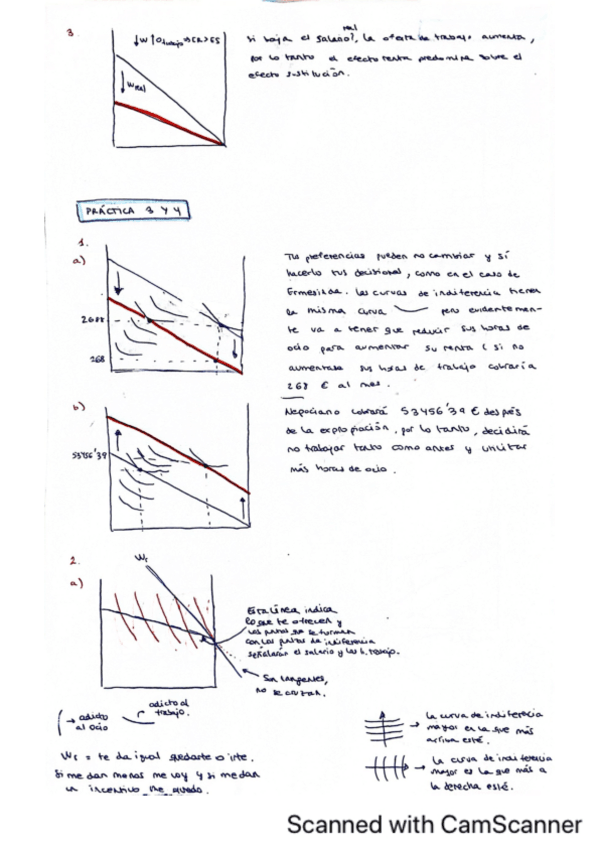 3
↓W ↑O trabajo → ER > ES
↓ W real
Si baja el salario real, la oferta de trabajo aumenta,
por lo tanto el efecto renta predomina sobre el
efecto sustitución.
PRÁCTICA 3 Y 4
1.
a)
2688
268
Tus preferencias pueden no cambiar y sí
hacerlo tus decisiones, como en el caso de
Ermesinda. Las curvas de indiferencia tienen
la misma curva pero evidentemen-
te va a tener que reducir sus horas de
ocio para aumentar su renta (si no
aumentase sus horas de trabajo cobraría
268 € al mes.
b)
53456'39
Nepociano cobrará 53456'39 € después
de la expropiación, por lo tanto, decidirá
no trabajar tanto como antes y utilizar
más horas de ocio.
2.
a)
Wr
Esta línea indica
lo que te ofrecen y
los puntos que se forman
con los puntos de indiferencia
señalarán el salario y las h. trabajo.
Son tangentes,
no se cruzan.
→ adicto al ocio
adicto al trabajo.
Wr = te da igual quedarte o irte.
Si me dan menos me voy y si me dan
un incentivo me quedo.
→ la curva de indiferencia
mayor es la que más
arriba esté.
→ la curva de indiferencia
mayor es la que más a
la derecha esté.
Scanned with CamScanner